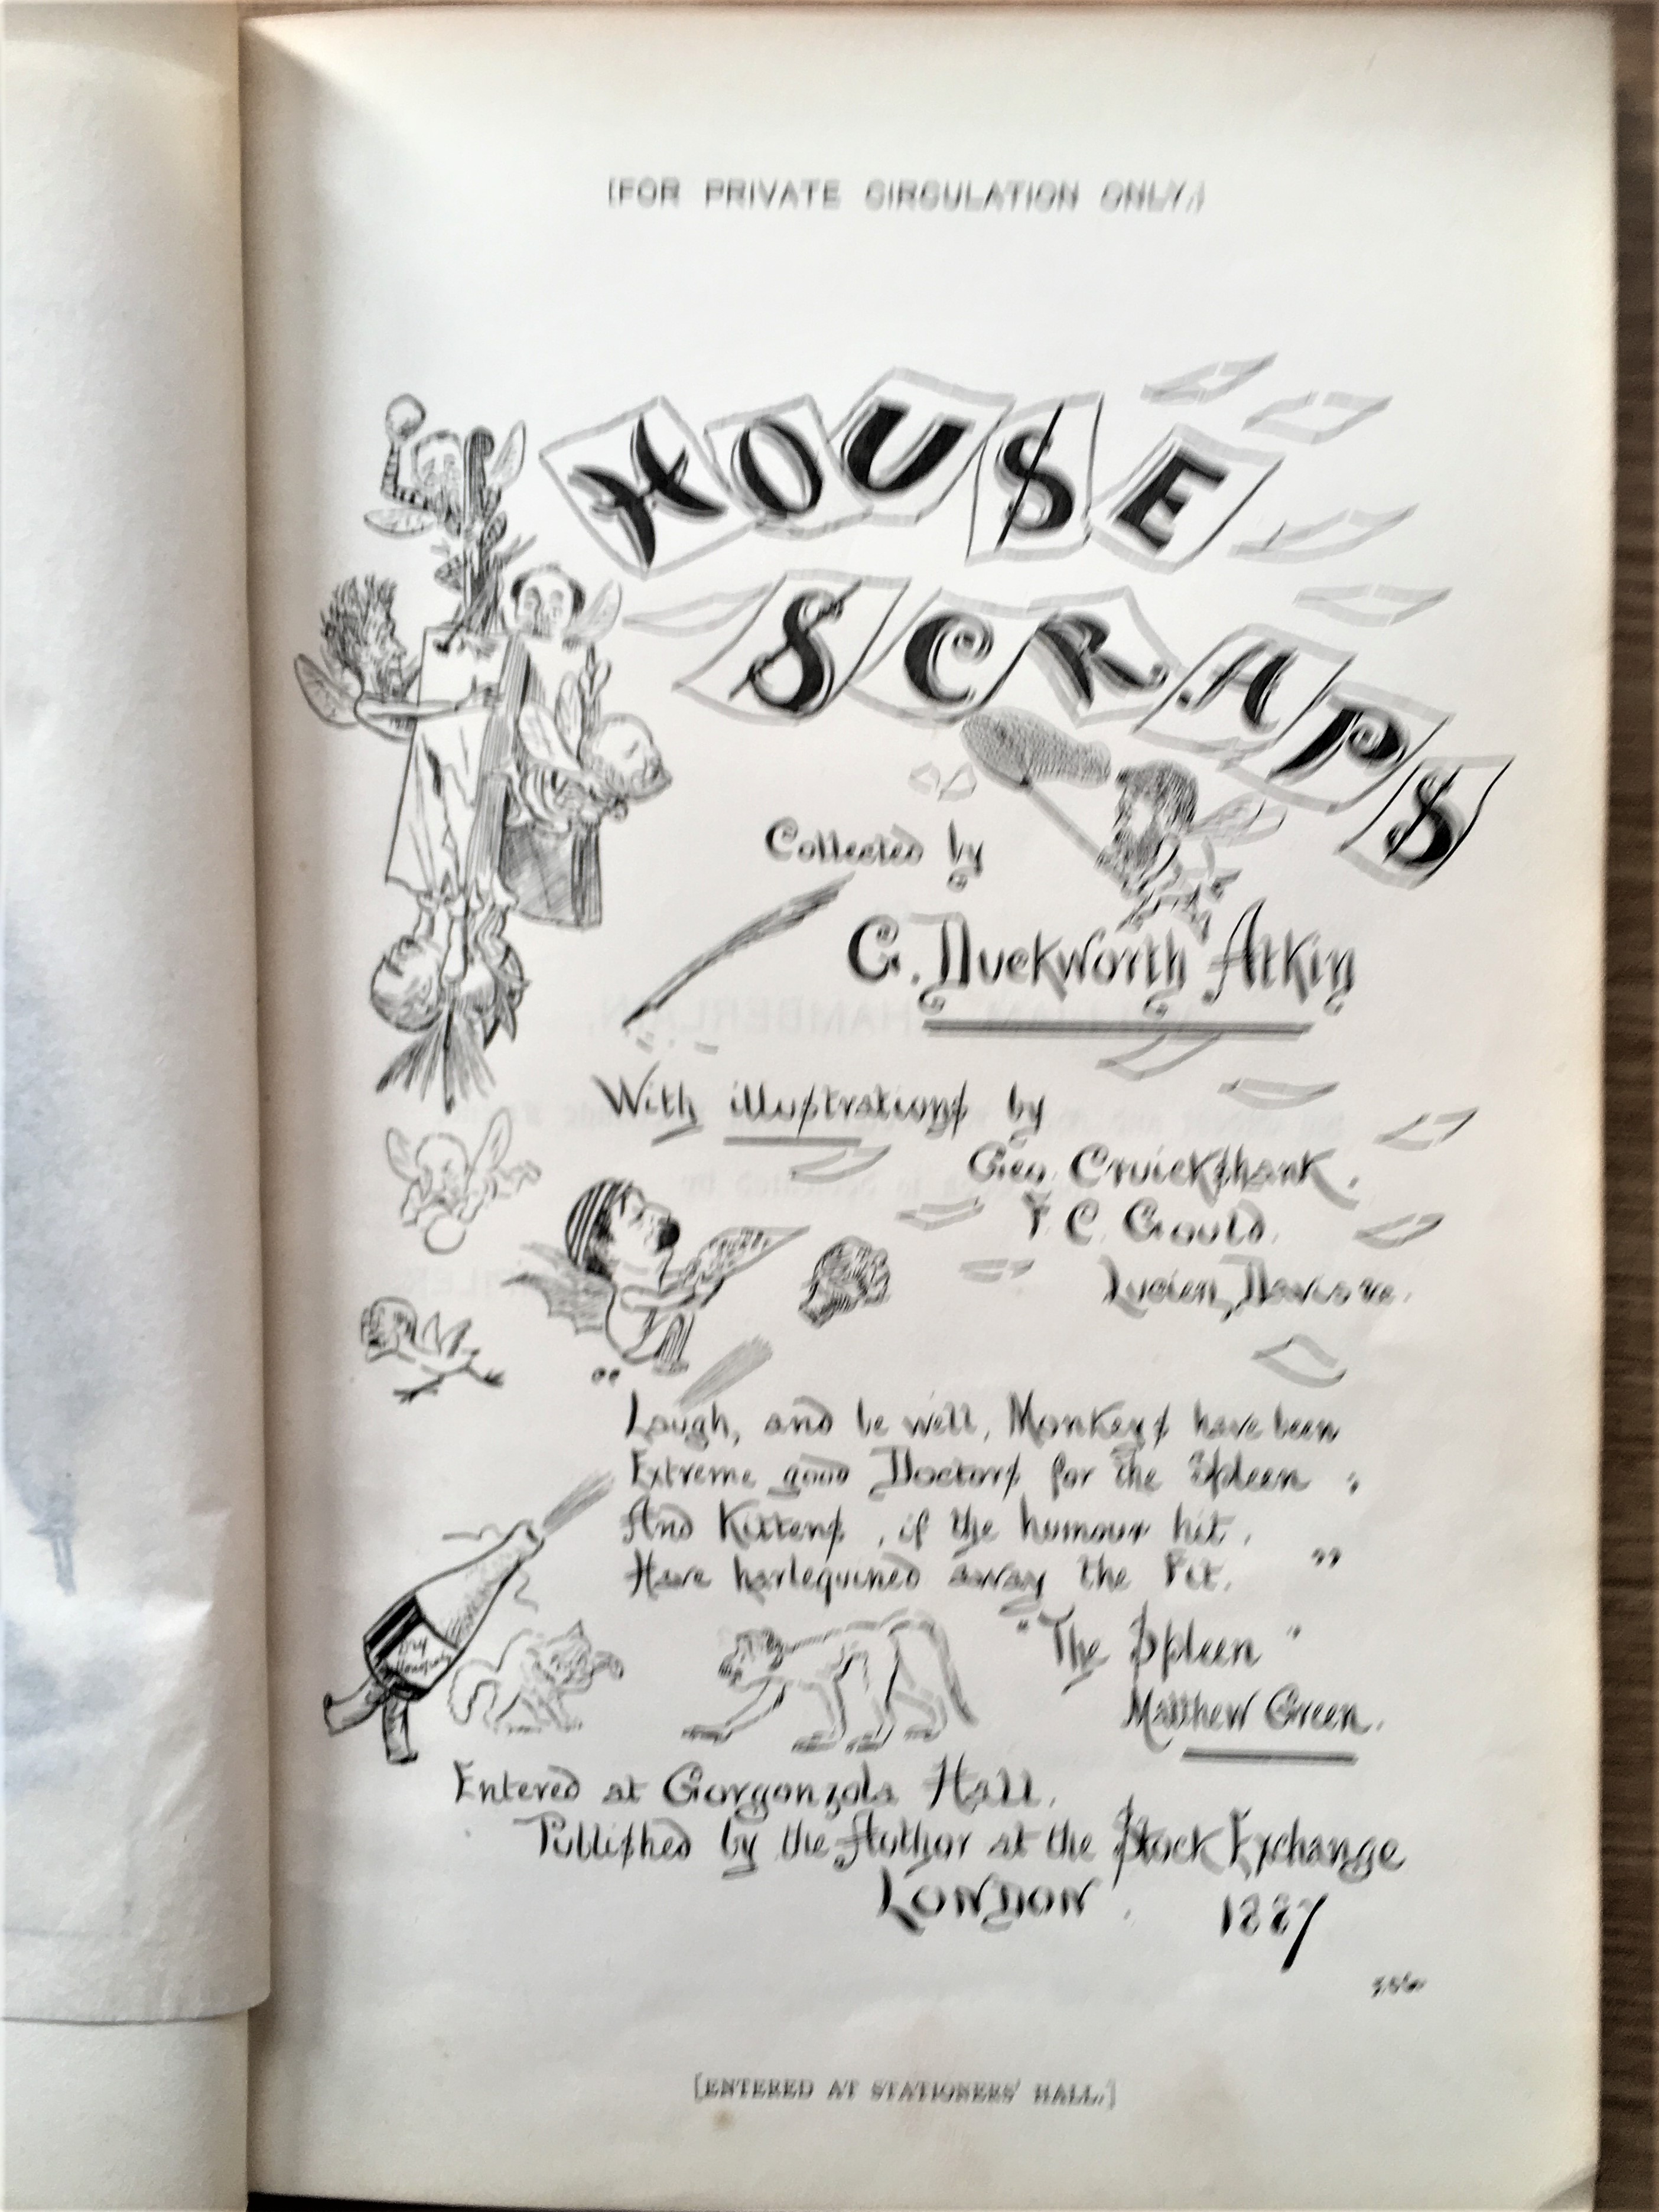 [FOR PRIVATE CIRCULATION ONLY.]
HOUSE
SCRAPS
Collected by
G. Duckworth Atkin
With illustrations by
Geo. Cruickshank.
F. C. Gould.
Lucien Davis
"
Laugh, and be well, Monkeys have been
Extreme good Doctors for the Spleen ;
And Kittens, if the humour hit,
Have harlequined away the Fit. "
"The Spleen"
Matthew Green.
Dry
Entered at Gorgonzola Hall.
Published by the Author at the Stock Exchange
LONDON. 1887
[ENTERED AT STATIONERS' HALL.]